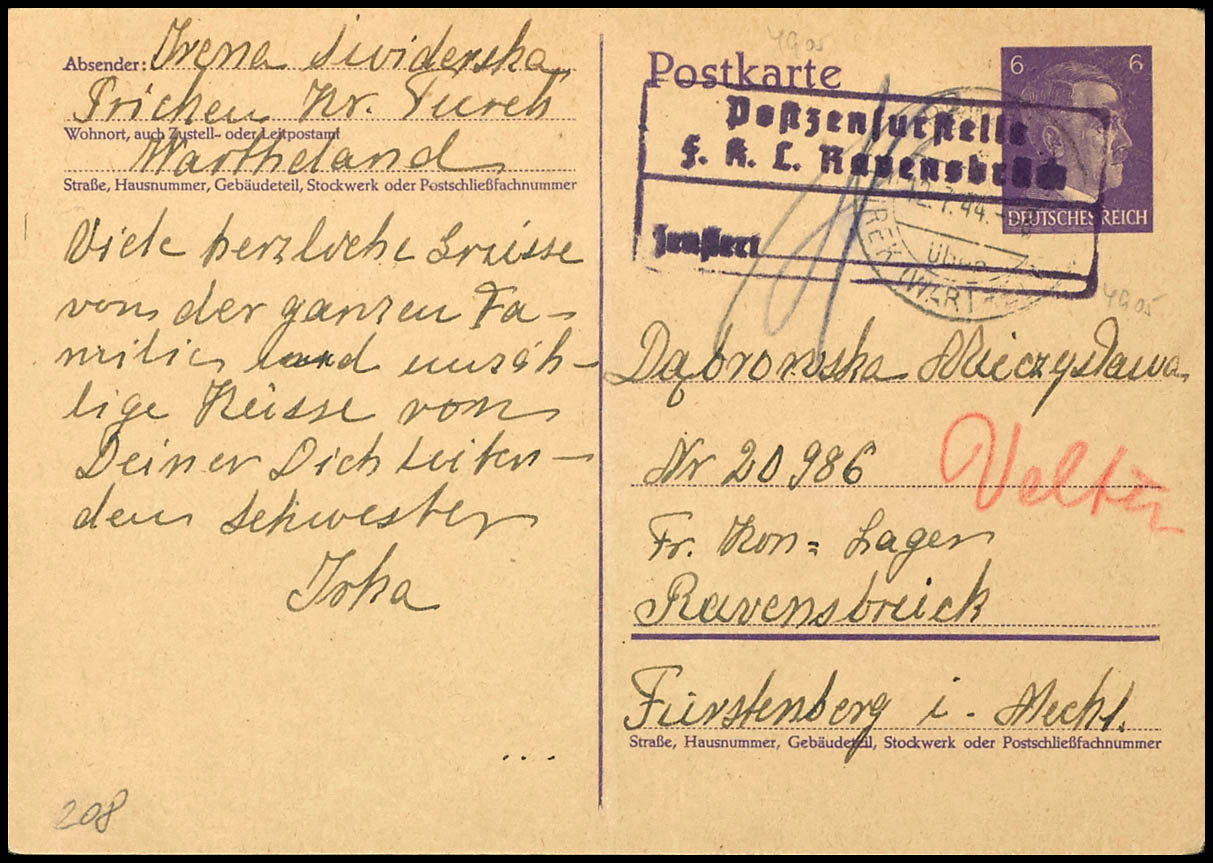 Absender: Irena Swiderska
Prichen Kr. Turek
Wohnort, auch Zustell- oder Leitpostamt
Wartheland
Straße, Hausnummer, Gebäudeteil, Stockwerk oder Postschließfachnummer
Viele herzloche Grüsse
von der ganzen Fa-
milie und unzäh-
lige Küsse von
Deiner Dich
den Schwester
Irka
...
208
4905
Postkarte
6 6
DEUTSCHES REICH
Postzensurstelle
F. K. L. Ravensbrück
12.7.44.
über
TUREK (WARTHE
4905
Dąbrowska Mieczysława
Nr 20986
Fr. Kon= Lager
Ravensbrück
Fürstenberg i. Meckl.
Straße, Hausnummer, Gebäudeteil, Stockwerk oder Postschließfachnummer